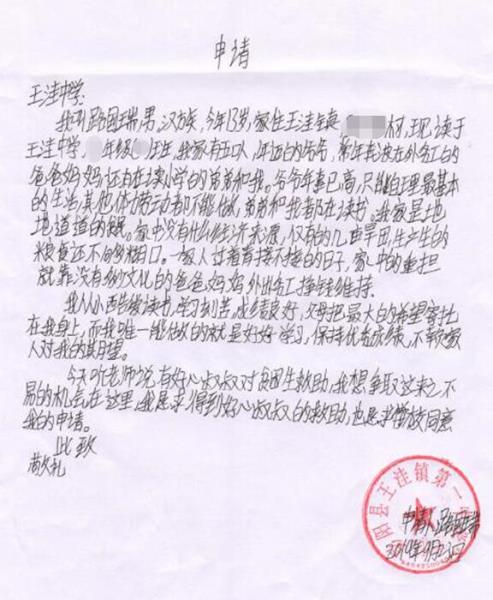 申请
王洼中学:
我叫路国瑞,男,汉族,今年13岁,家住王洼镇 村,现读于
王洼中学, 年级 班,我家有五口人,年迈的爷爷,常年奔波在外务工的
爸爸妈妈还有在读小学的弟弟和我。爷爷年事已高,只能自理最基本
的生活,其他体力劳动都不能做,弟弟和我都在读书。我家是地
地道道的 。家中没有什么经济来源,仅有的几亩旱田,生产生的
粮食还不够糊口。一家人过着青接不接的日子,家中的重担
就靠没有多少文化的爸爸妈妈外出务工挣钱维持。
我从小酷爱读书,学习刻苦,成绩良好,父母把最大的希望寄托
在我身上,而我唯一能做的就是好好学习,保持优秀成绩,不辜负家
人对我的期望。
今天听老师说有好心叔叔对贫困生救助,我想争取这来之不
易的机会,在这里,我恳求得到好心叔叔的救助,也恳求 校同意
我的申请。
此致
敬礼
阳县王洼镇第一
申请人:路国瑞
2019年9月23日